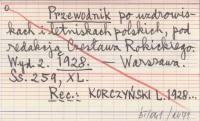 Przewodnik po uzdrowis-
kach i letniskach polskich, pod
redakcją Czesława Rokickiego.
Wyd. 2. 1928. — Warszawa.
Ss. 259, XL.
Rec.: KORCZYŃSKI L. 1928...